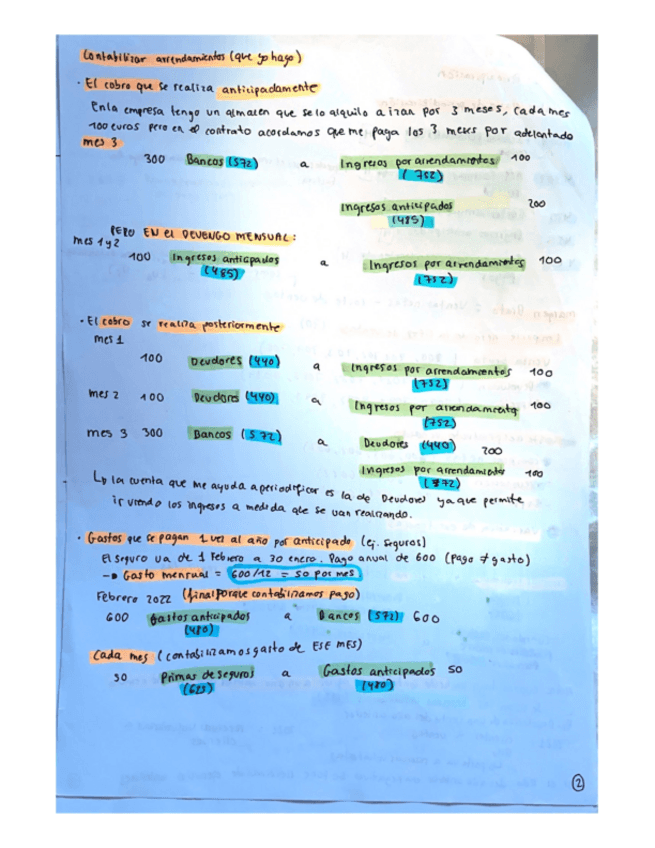 Contabilizar arrendamientos (que yo hago)
· El cobro que se realiza anticipadamente
En la empresa tengo un almacen que se lo alquilo a izan por 3 meses, cada mes
100 euros pero en el contrato acordamos que me paga los 3 meses por adelantado
mes 3
300 Bancos (572) a Ingresos por arrendamientos 100
(752)
Ingresos anticipados 200
(485)
PERO EN EL DEVENGO MENSUAL:
mes 1 y 2
100 Ingresos anticipados a Ingresos por arrendamientos 100
(485) (752)
· El cobro se realiza posteriormente
mes 1
100 Deudores (440) a Ingresos por arrendamientos 100
(752)
mes 2 100 Deudores (440) a Ingresos por arrendamiento 100
(752)
mes 3 300 Bancos (572) a Deudores (440) 200
Ingresos por arrendamientos 100
(772)
↳ la cuenta que me ayuda a periodificar es la de Deudores ya que permite
ir viendo los ingresos a medida que se van realizando.
· Gastos que se pagan 1 vez al año por anticipado (ej. Seguros)
El seguro va de 1 Febrero a 30 enero. Pago anual de 600 (Pago ≠ gasto)
→ Gasto mensual = 600/12 = 50 por mes
Febrero 2022 (final porque contabilizamos pago)
600 Gastos anticipados a Bancos (572) 600
(480)
Cada mes (contabilizamos gasto de ESE MES)
50 Primas de seguros a Gastos anticipados 50
(625) (480)
2